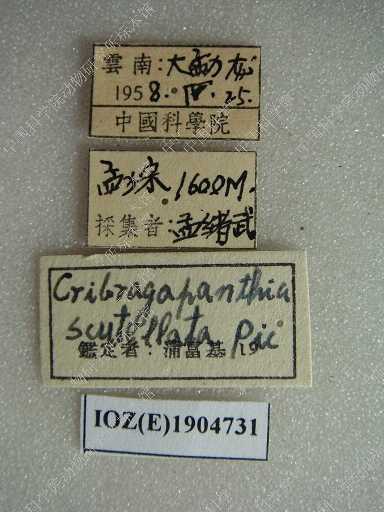 雲南:大勐松
1958.IV.25.
中國科學院
孟宋 1600M.
採集者:孟緒武
Cribragapanthia
scutellata Pic
鑑定者:蒲富基 19
IOZ(E)1904731